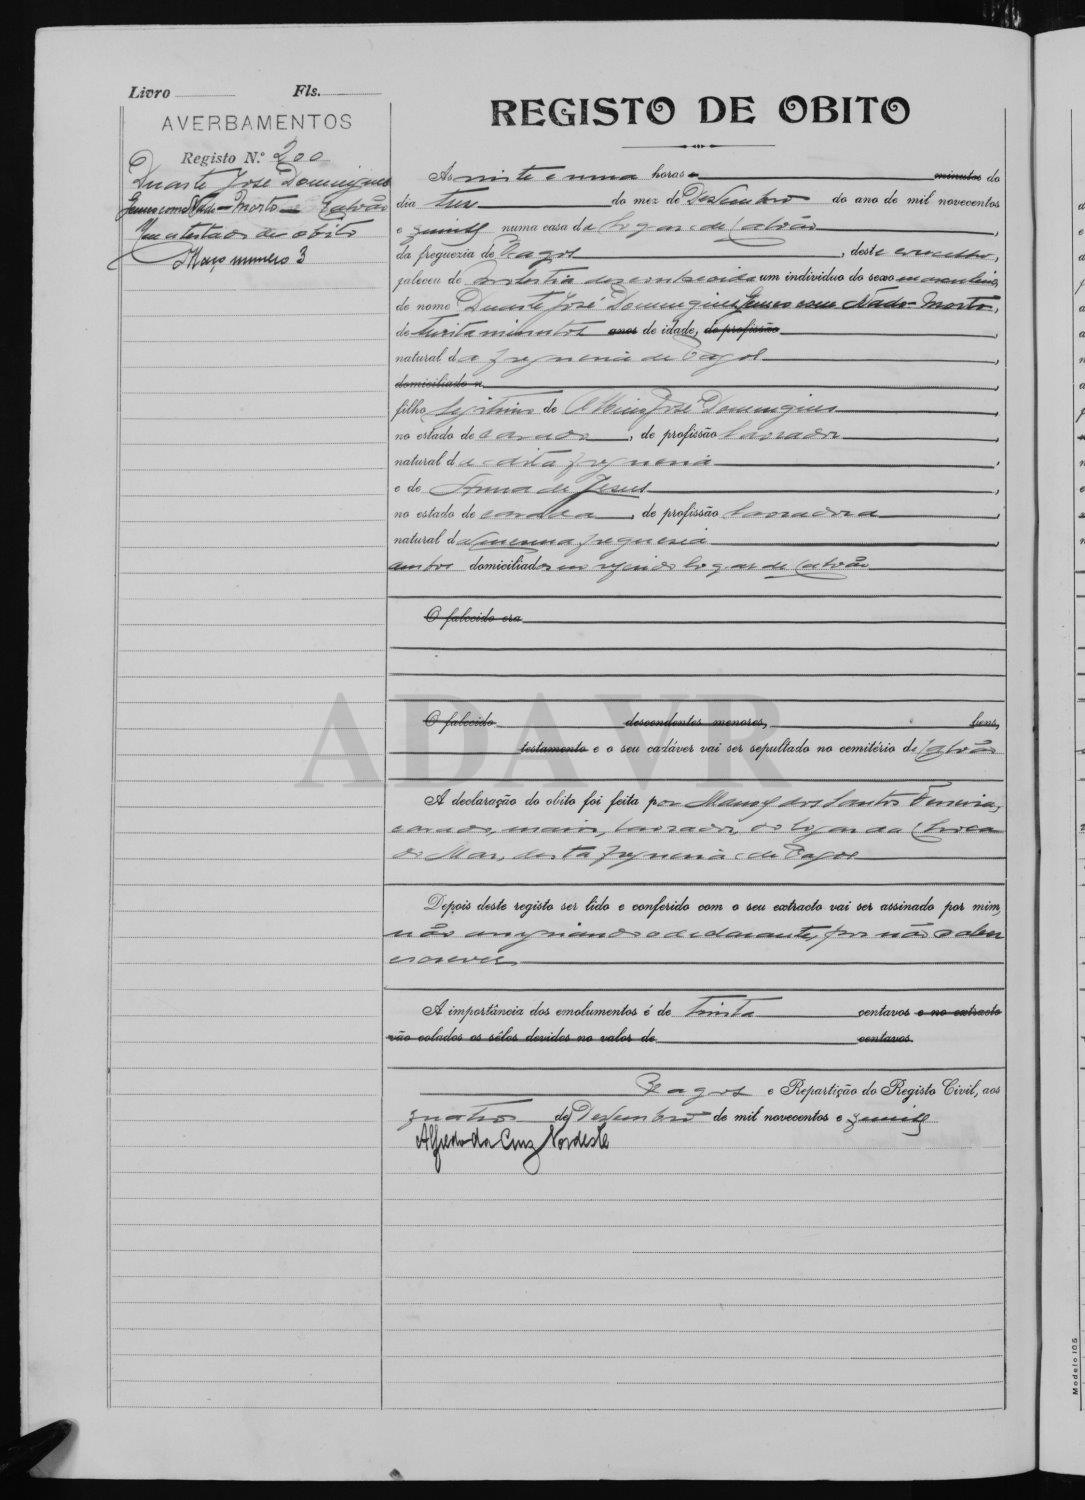 Livro Fls.
AVERBAMENTOS
Registo N.º 200
Duarte José Domingues
Gemeo como Nado-Morto - Calvão
Um atestado de obito
Maço numero 3
REGISTO DE OBITO
Ás vinte e uma horas e minutos do
dia tres do mez de Desembro do ano de mil novecentos
e quinse numa casa do logar de Calvão,
da freguezia de Vagos, deste concelho,
faleceu de molestia desconhecida um individuo do sexo masculino,
de nome Duarte José Domingues Gemeo com Nado-Morto,
de trinta minutos anos de idade, de profissão,
natural da freguesia de Vagos,
domiciliado n,
filho legitimo de José Domingues,
no estado de casado, de profissão lavrador,
natural da dita freguesia,
e de Anna de Jesus,
no estado de casada, de profissão lavradora,
natural da mesma freguesia,
ambos domiciliados no referido logar de Calvão
O falecido era
O falecido descendentes menores, bens,
testamento e o seu cadáver vai ser sepultado no cemitério de Calvão
ADAVR
A declaração do obito foi feita por Manoel dos Santos Ferreira,
casado, maior, lavrador, do logar da Choca
do Mar, desta freguesia de Vagos
Depois deste registo ser lido e conferido com o seu extracto vai ser assinado por mim,
não assignando o declarante, por não saber
escrever
A importância dos emolumentos é de trinta centavos e no extracto
vão colados os sêlos devidos no valor de centavos.
Vagos e Repartição do Registo Civil, aos
quatro de Desembro de mil novecentos e quinse
Alfredo da Cruz Nordeste
Modelo 105